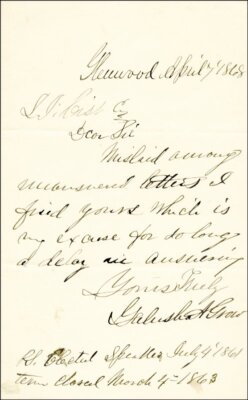 Glenwood April 7 1868
L. J. Cist
Dear Sir
Mislaid among
unanswerd letters I
find yours which is
my excuse for so long
a delay in answering
Yours Truly
Galusha A Grow
P.S. Elected Speaker July 4th 1861
term closed March 4-1863